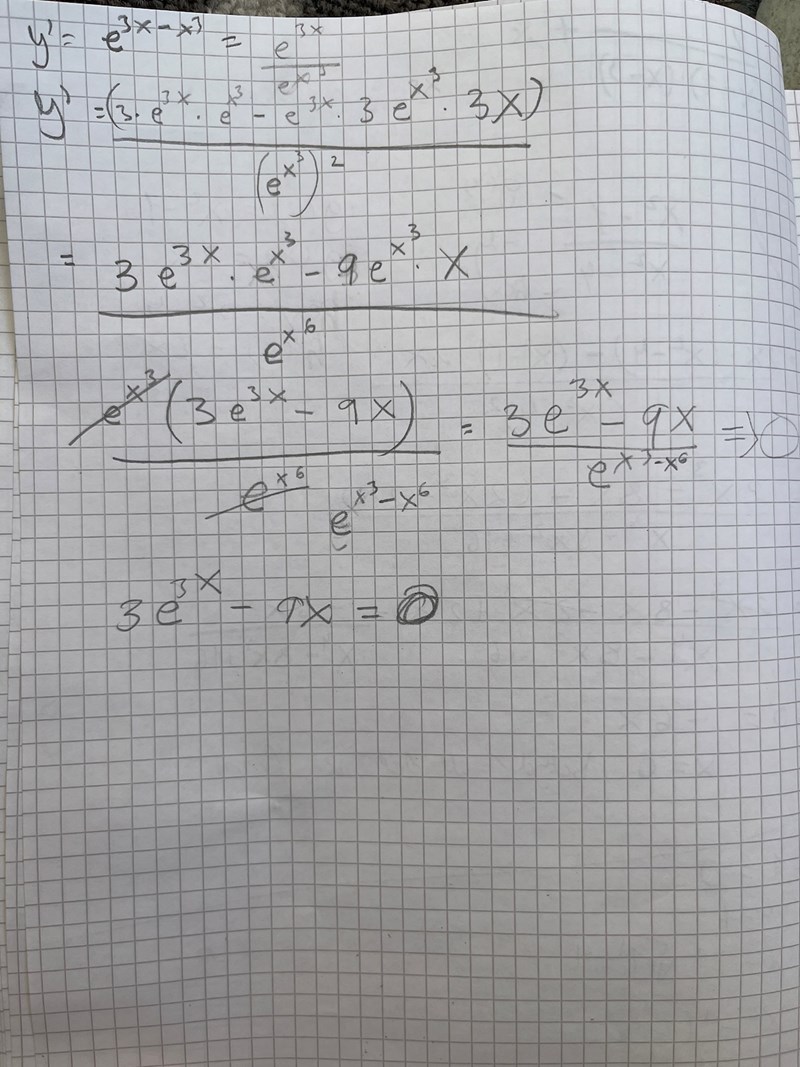 y' = e^{3x-x^3} = \frac{e^{3x}}{e^{x^3}}
y' = \frac{(3 \cdot e^{3x} \cdot e^{x^3} - e^{3x} \cdot 3 e^{x^3} \cdot 3x)}{(e^{x^3})^2}
= \frac{3 e^{3x} \cdot e^{x^3} - 9 e^{x^3} \cdot x}{e^{x^6}}
\frac{e^{x^3} (3 e^{3x} - 9x)}{e^{x^6} e^{x^3-x^6}} = \frac{3e^{3x} - 9x}{e^{x^3-x^6}} => 0
3e^{3x} - 9x = 0